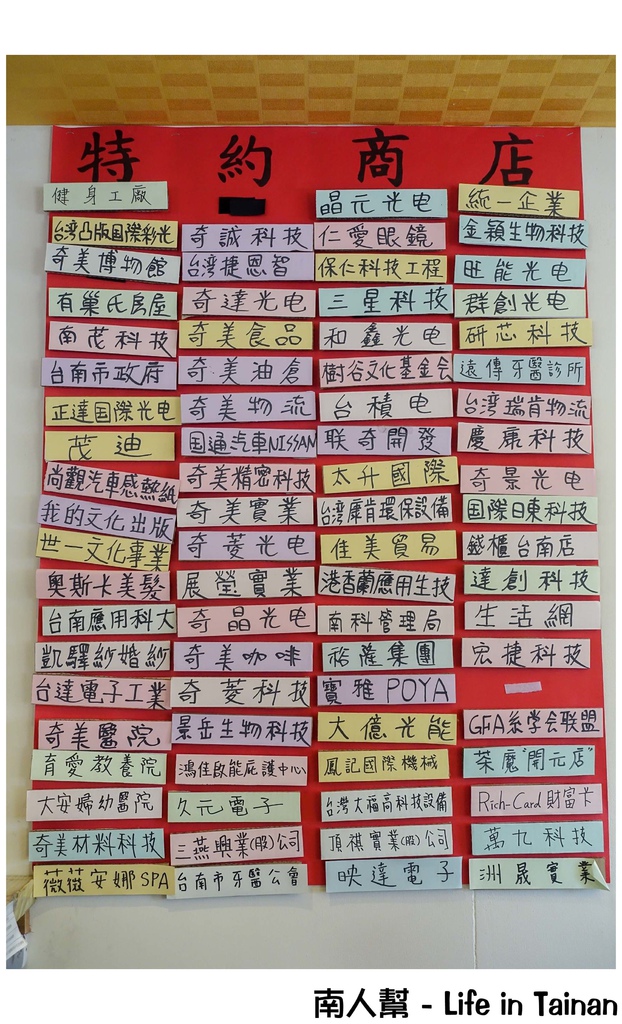 特約商店
健身工廠
台湾凸版国際彩光
奇美博物館
有巢氏房屋
南茂科技
台南市政府
正達国際光电
茂迪
尚觀汽車感熱紙
我的文化出版
世一文化事業
奧斯卡美髮
台南應用科大
凱驛紗婚紗
台達電子工業
奇美醫院
育愛教養院
大安婦幼醫院
奇美材料科技
薇薇安娜SPA
奇誠科技
台湾捷恩智
奇達光电
奇美食品
奇美油倉
奇美物流
国通汽車NISSAN
奇美精密科技
奇美實業
奇菱光电
展瑩實業
奇晶光电
奇美咖啡
奇菱科技
景岳生物科技
鴻佳啟能庇護中心
久元電子
三燕興業(股)公司
台南市牙醫公會
晶元光电
仁愛眼鏡
保仁科技工程
三星科技
和鑫光电
樹谷文化基金会
台積电
联奇開發
太升國際
台湾庫肯環保設備
佳美貿易
港香蘭應用生技
南科管理局
裕隆集團
寶雅POYA
大億光能
鳳記國際機械
台灣大福高科技設備
頂祺實業(股)公司
映達電子
統一企業
金穎生物科技
旺能光电
群創光电
研芯科技
遠傳牙醫診所
台湾瑞肯物流
慶康科技
奇景光电
国際日東科技
錢櫃台南店
達創科技
生活網
宏捷科技
GFA系学会联盟
茶魔"開元店"
Rich-Card財富卡
萬九科技
洲晟實業
南人幫 - Life in Tainan